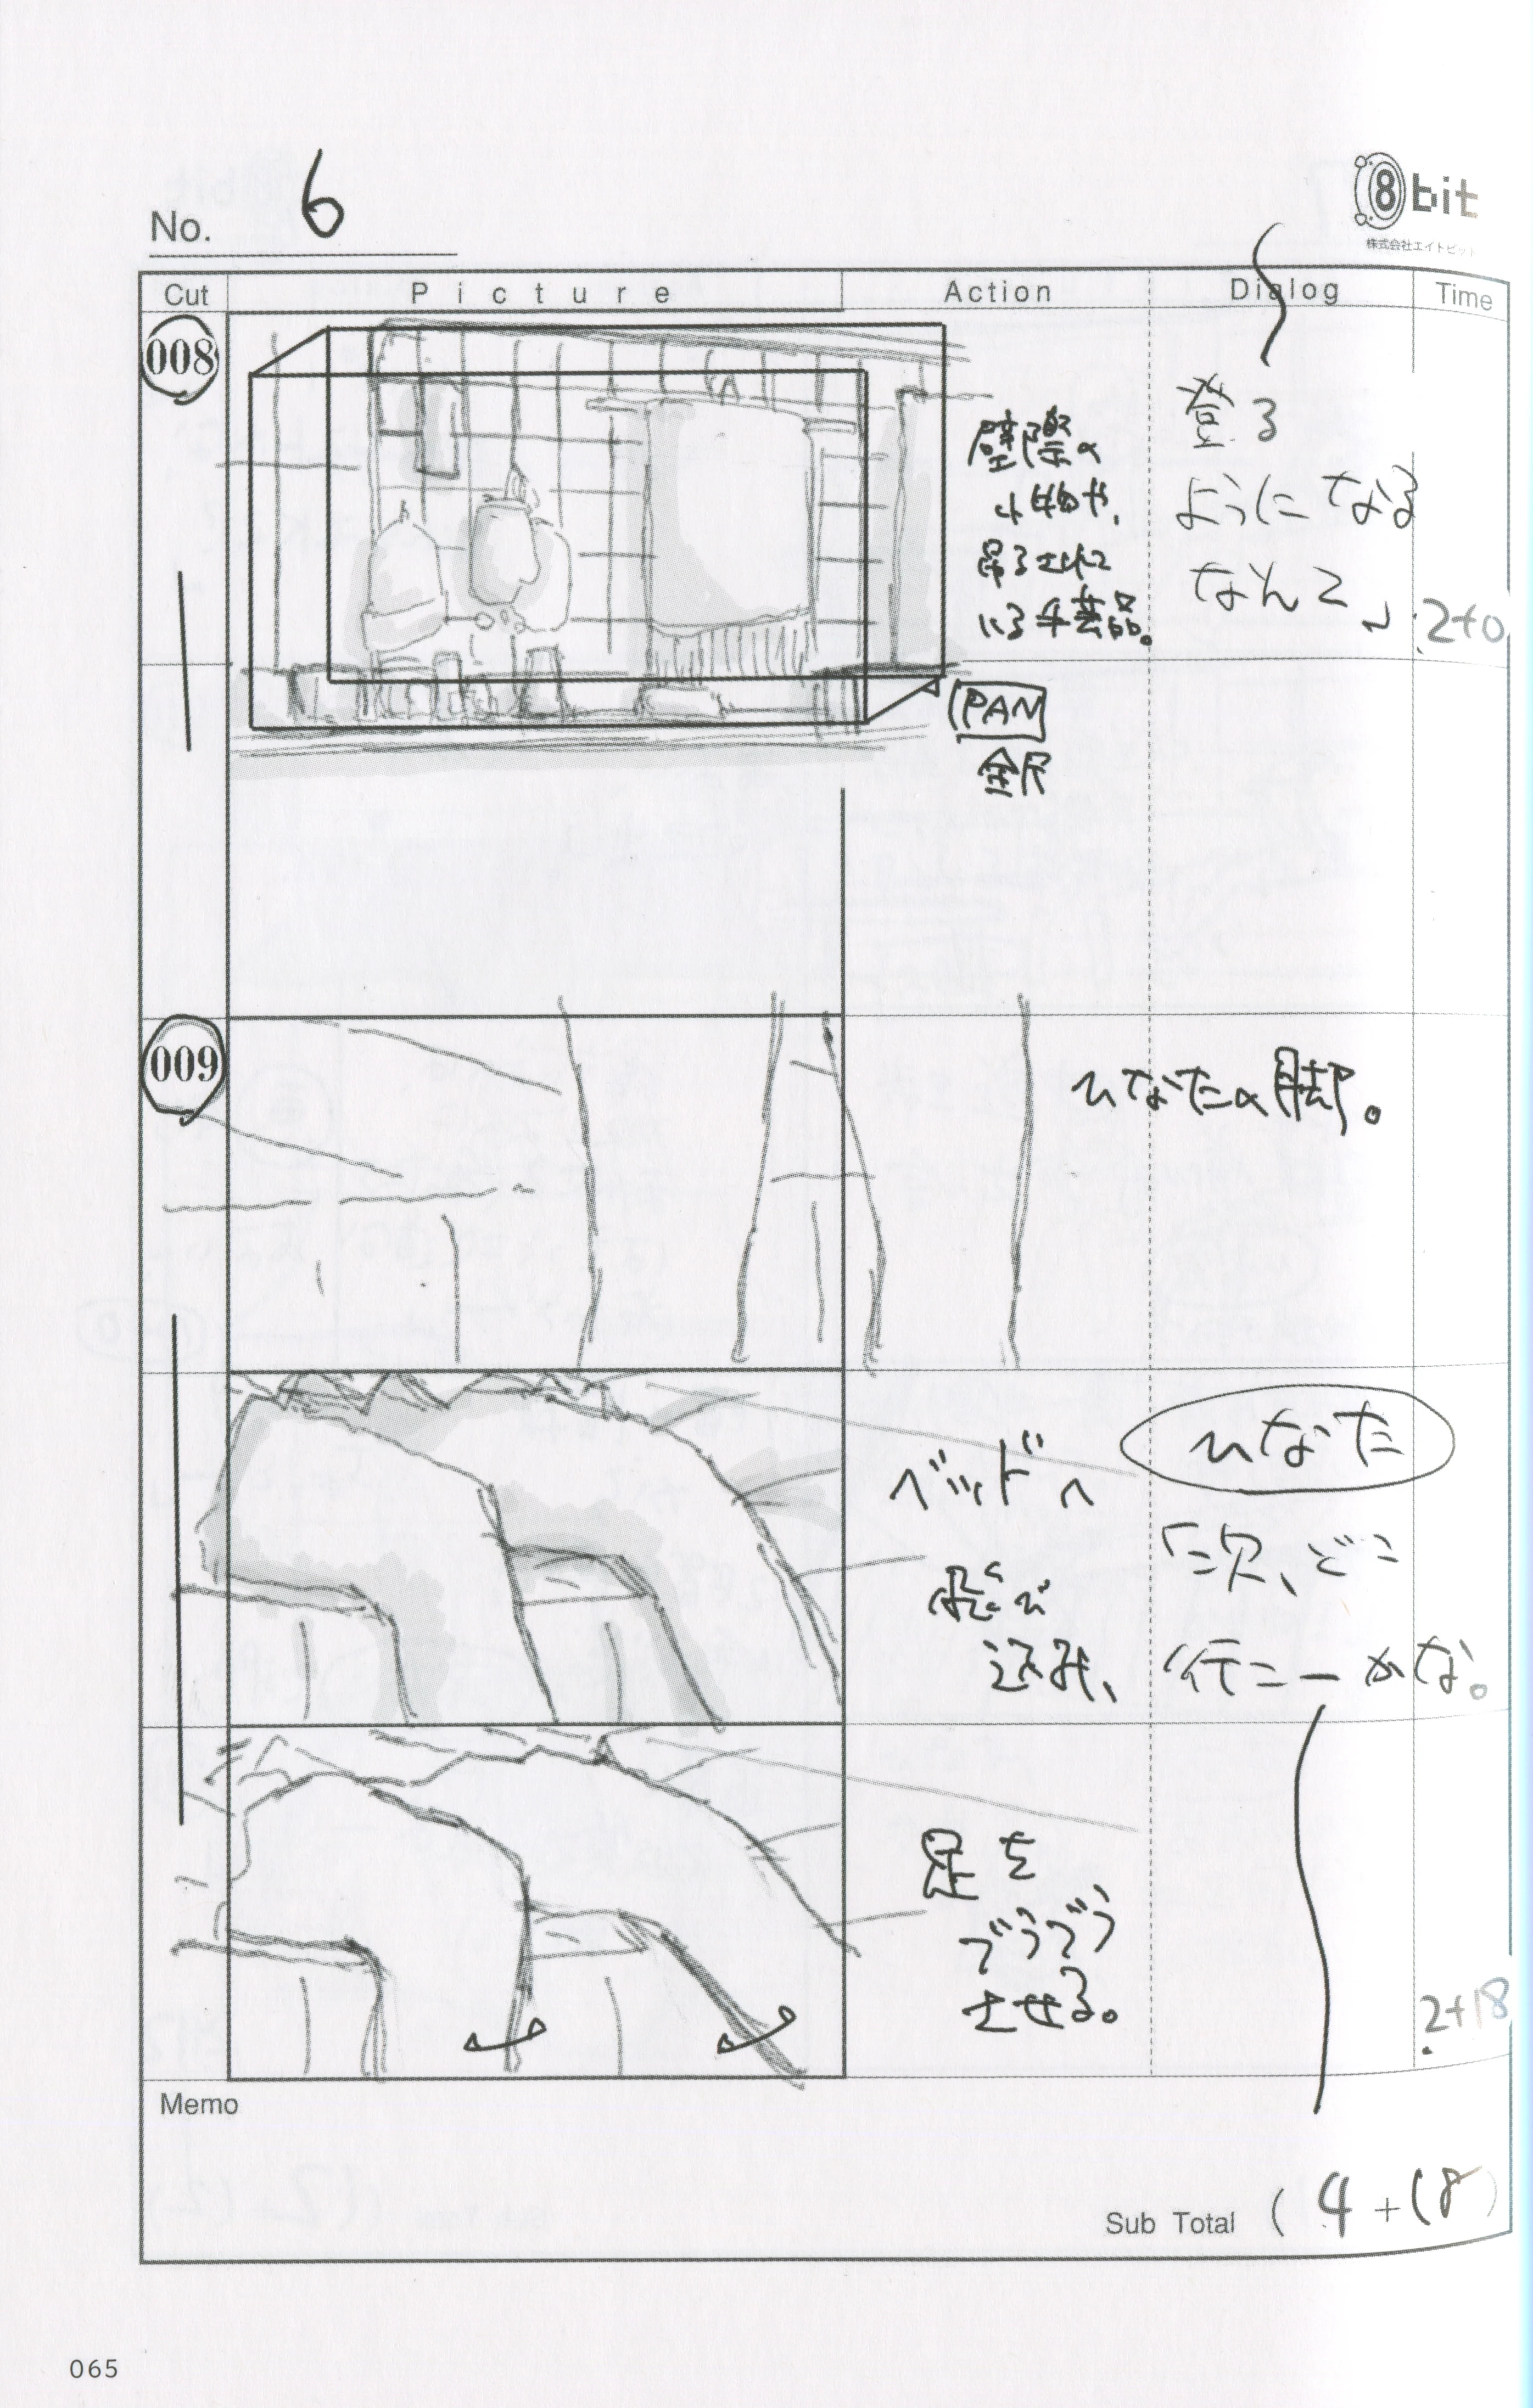 No. 6
8bit
株式会社エイトビット
Cut
Picture
Action
Dialog
Time
008
壁際の
小物や、
吊るされて
いる手芸品。
PAN
全尺
登る
ようになる
なんて」
2+0
009
ひなたの脚。
ベッドへ
飛び
込み、
ひなた
「次、どこ
行こーかな。
足を
ぶらぶら
させる。
2+18
Memo
Sub Total ( 4+18 )
065